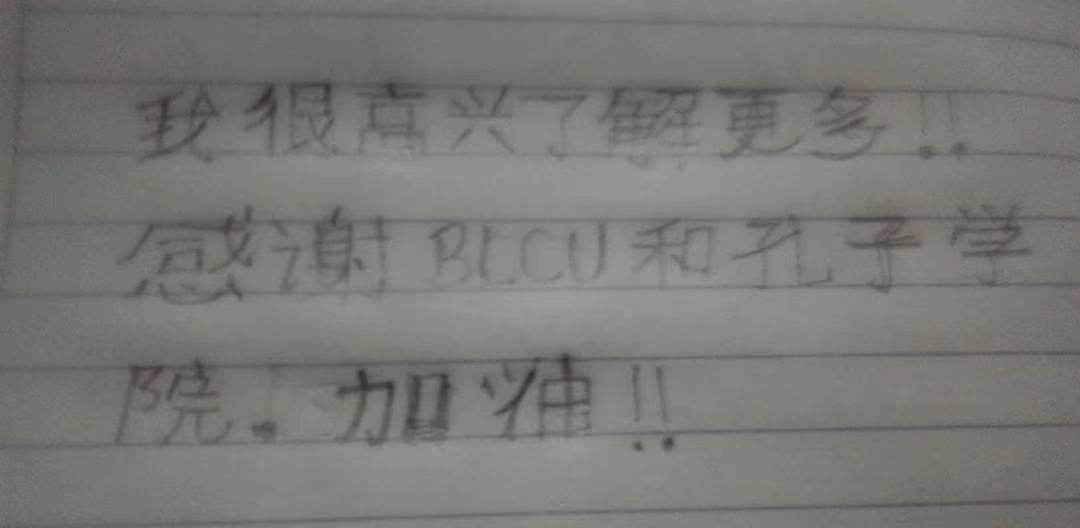 我很高兴了解更多!!
感谢BLCU和孔子学
院.加油!!